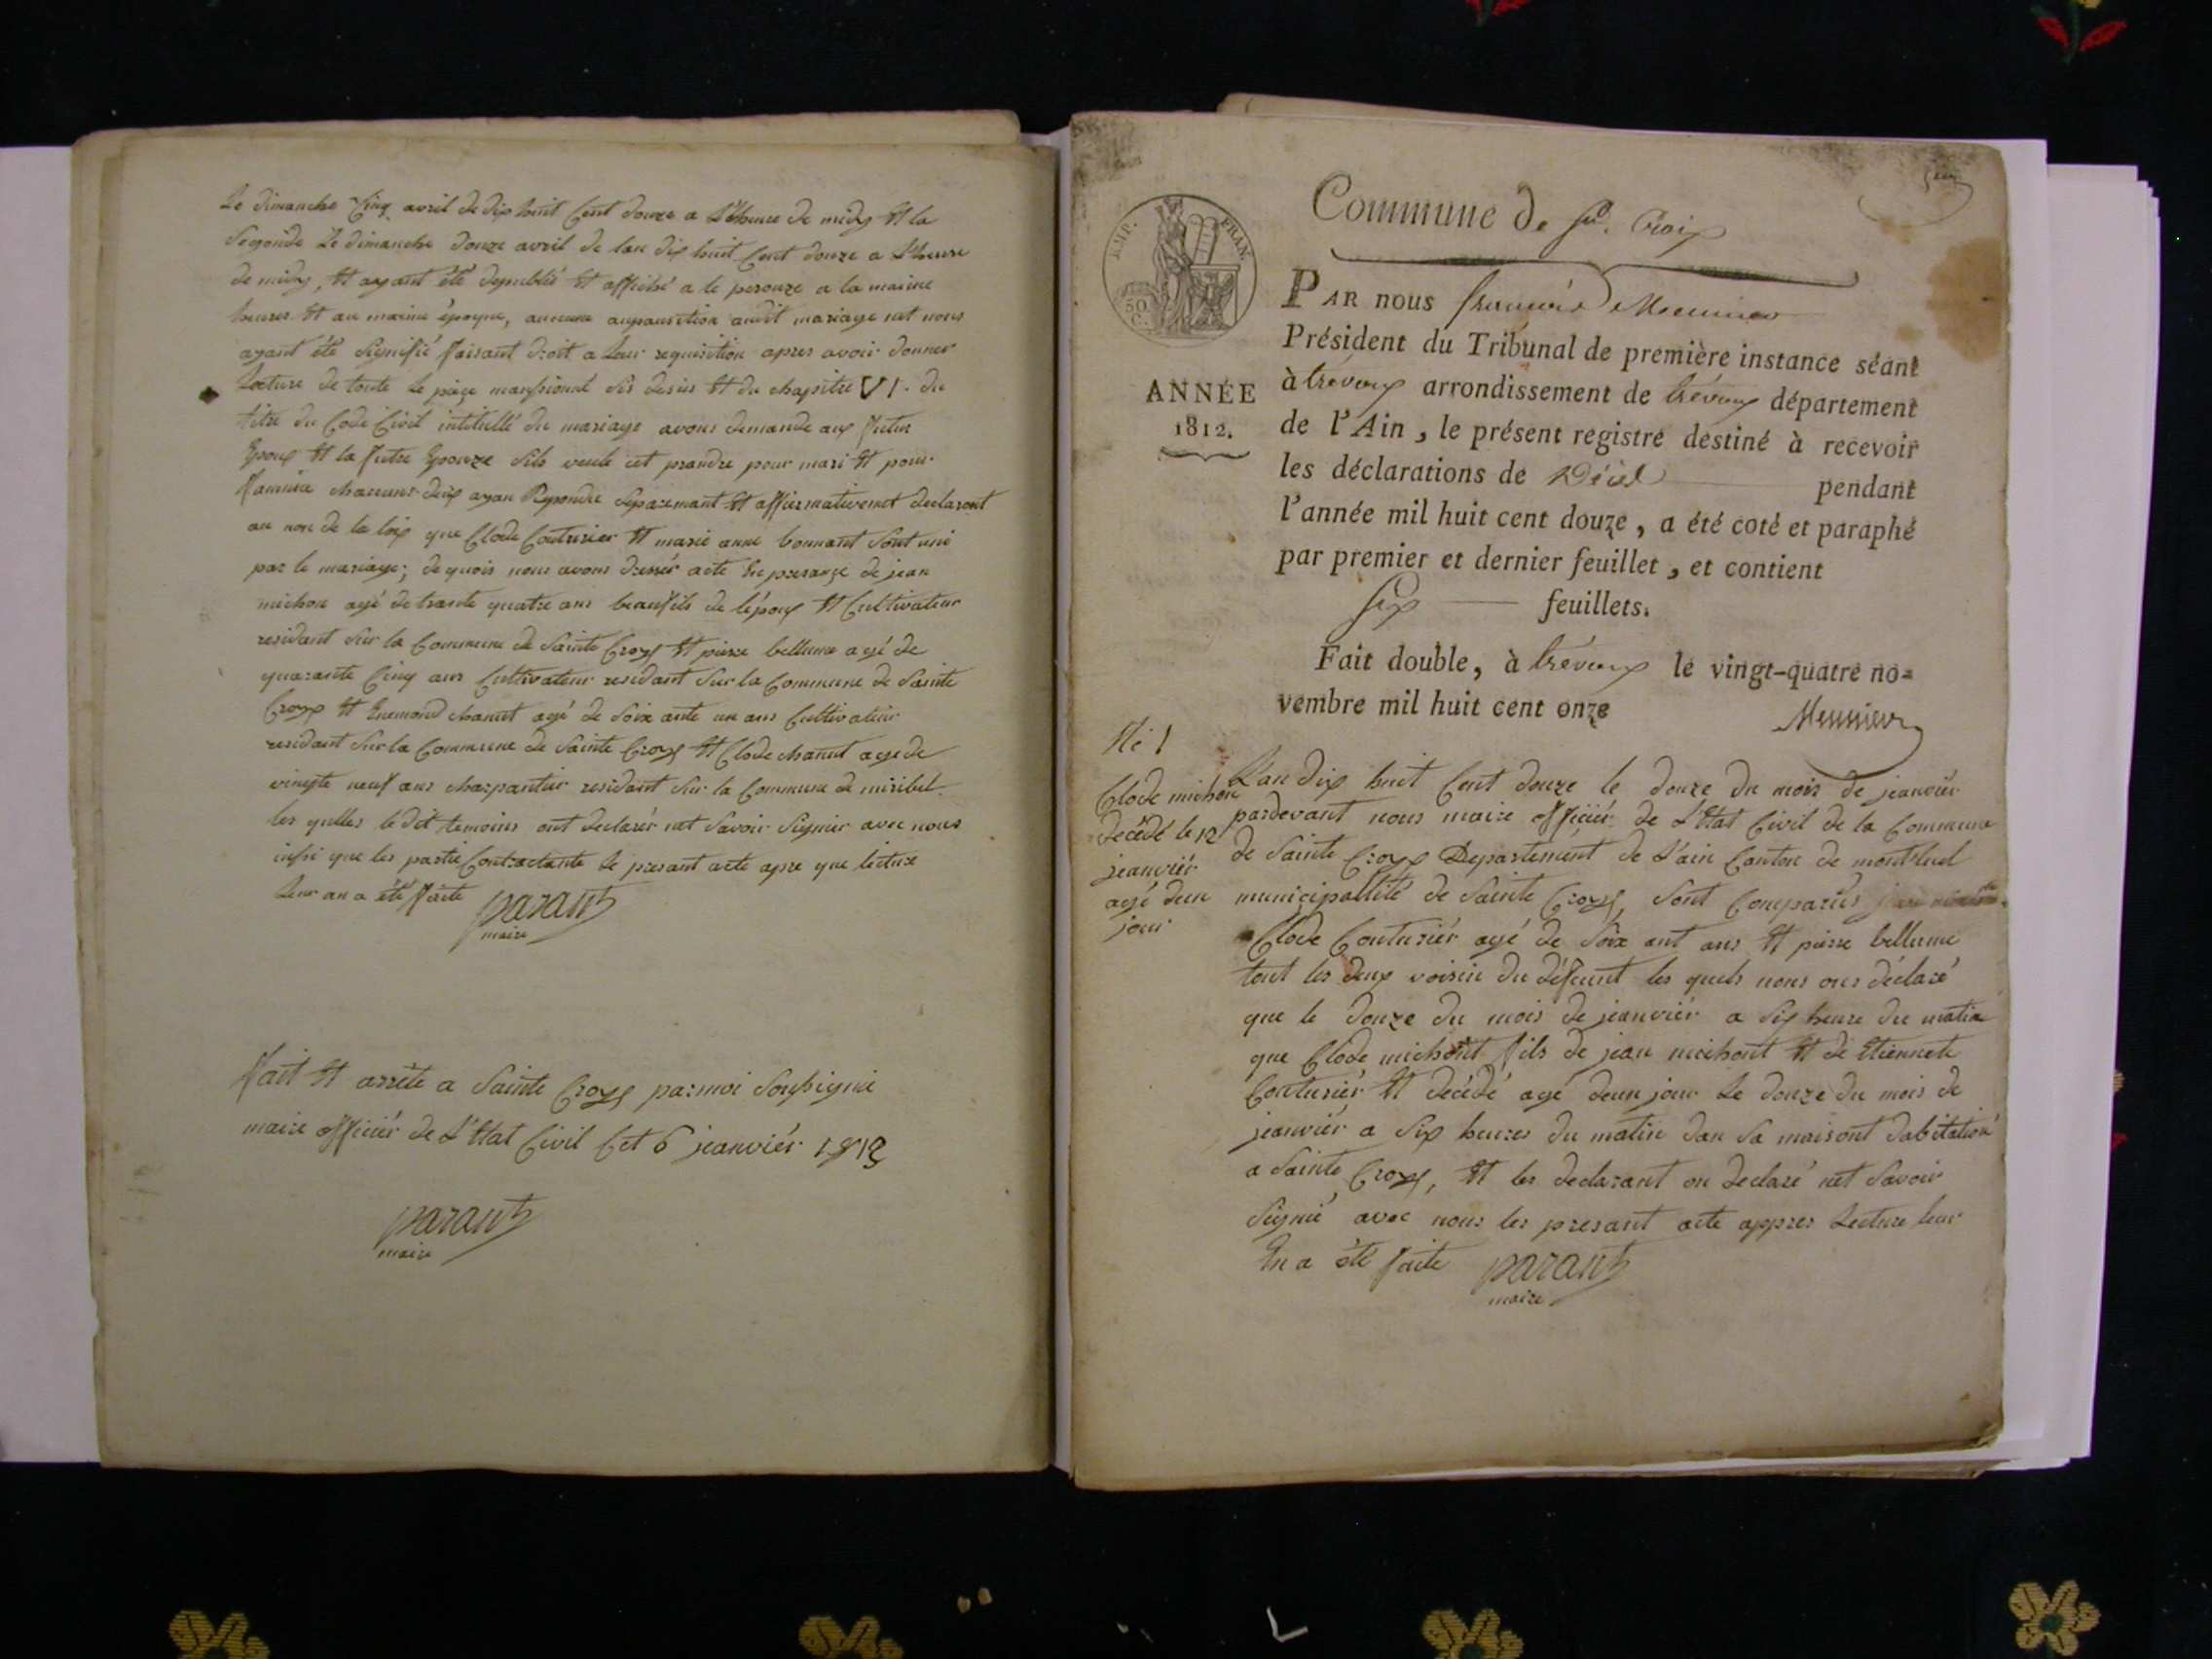 Le dimanche Cinq avril de dix huit Cent douze a L'heure de midy Et la
Segonde Le dimanche douze avril de lan dix huit Cent douze a L'heure
de midy, Et ayant été depublié Et affiché a le perouze a la maime
heures Et au maime époque, aucune aupausition audit mariage net nous
ayant été Signifié faisant droit a Leur requisition apres avoir donner
Lecture de toute le pieçe mansionné sis desus Et du chapitre VI. du
titre du Code Civil intitullé du mariage avons demande aux futur
Epoux Et la futre Epouze sils veule cet prandre pour mari Et pour
famme chacuns deux ayan Repondu Separemant Et affirmativemet declaront
au non de la loix que Clode Couturier Et marie anne bonnant sont uni
par le mariage; de quois nous avons dressér acte En presançe de jean
michon agé de trante quatre ans beaufils de lépoux Et Cultivateur
residant sur la Commune de Sainte Croyx Et pierre bellume agé de
quarante Cinq ans Cultivateur residant Sur la Commune de Sainte
Croyx Et Enemond chanut agé de Soix ante un ans Cultivateur
residant Sur la Commune de Sainte Croyx Et Clode chanut age de
vingte neuf ans charpantier residant Sur la Commune de miribel
les quelles lédit temoins ont declarér net Savoir Signier avec nous
insi que les partie Contractante Le presant acte apre que lecture
Leur an a été faite
parant
maire
fait Et arrète a Sainte Croyx par moi Soussignié
maire officiér de L'Etat Civil Cet 6 jeanviér 1813
parant
maire
Commune de Ste. Croix
IMP. FRAN.
50 C.
PAR nous françois Meunier
Président du Tribunal de première instance séant
à trévoux arrondissement de trévoux département
de l'Ain, le présent registre destiné à recevoir
les déclarations de Décès pendant
l'année mil huit cent douze, a été coté et paraphé
par premier et dernier feuillet, et contient
six feuillets.
ANNÉE
1812.
Fait double, à trévoux le vingt-quatre no-
vembre mil huit cent onze
Meunier
No 1
Clode michon
decédé le 12
jeanviér
agé deun
jour
L'an dix huit Cent douze le douze du mois de jeanviér
pardevant nous maire officiér de L'Etat Civil de la Commune
de Sainte Croyx Departement de L'ain Canton de montluel
municipallité de Sainte Croyx, Sont Comparus
Clode Couturiér agé de Soix ant ans Et pierre bellume
tout les deux voisin du défeunt les quels nous ons déclaré
que le douze du mois de jeanviér a Six heure du matin
que Clode michont fils de jean michont Et de Etiennete
Couturiér Et décédé agé deun jour Le douze du mois de
jeanviér a Six heures du matin dan Sa maisont dabitation
a Sainte Croyx, Et les declarant on declaré net Savoir
Signié avec nous les presant acte appres Lecture leur
En a été faite
parant
maire